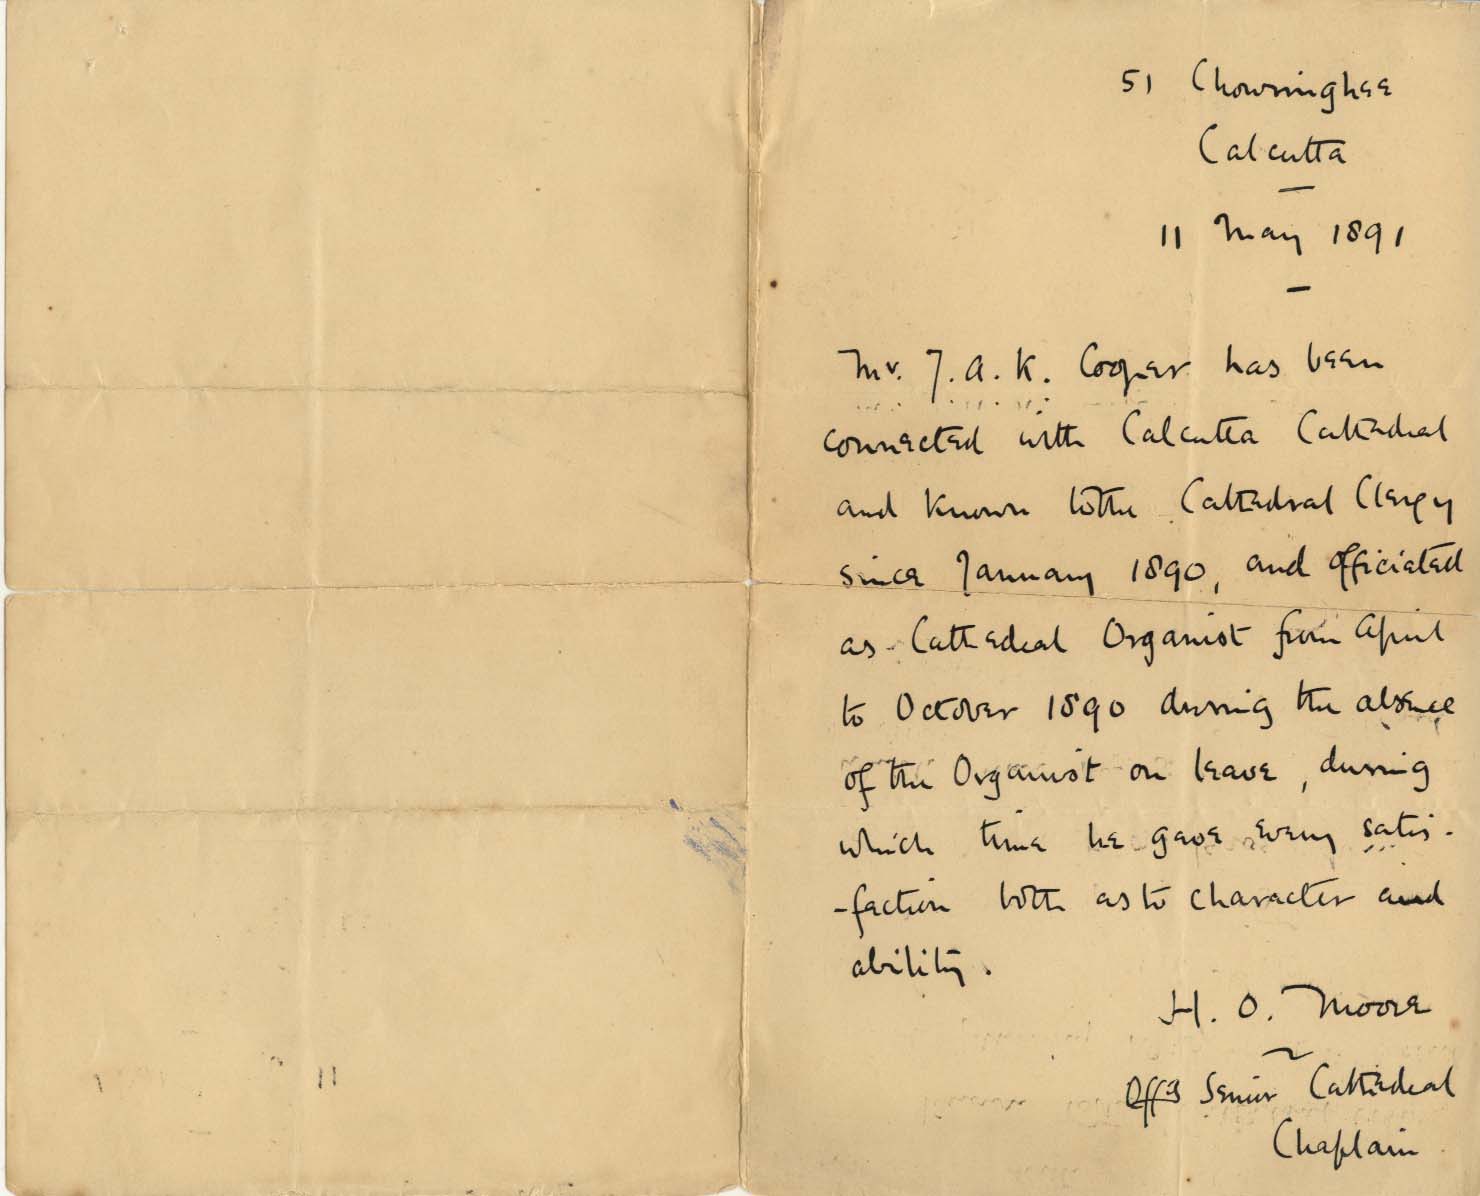 51 Chowringhee
Calcutta
11 May 1891
Mr. J. A. K. Cooper has been
connected with Calcutta Cathedral
and known to the Cathedral Clergy
since January 1890, and officiated
as Cathedral Organist from April
to October 1890 during the absence
of the Organist on leave, during
which time he gave every satis-
-faction both as to character and
ability.
H. O. Moore
Offg Senior Cathedral
Chaplain